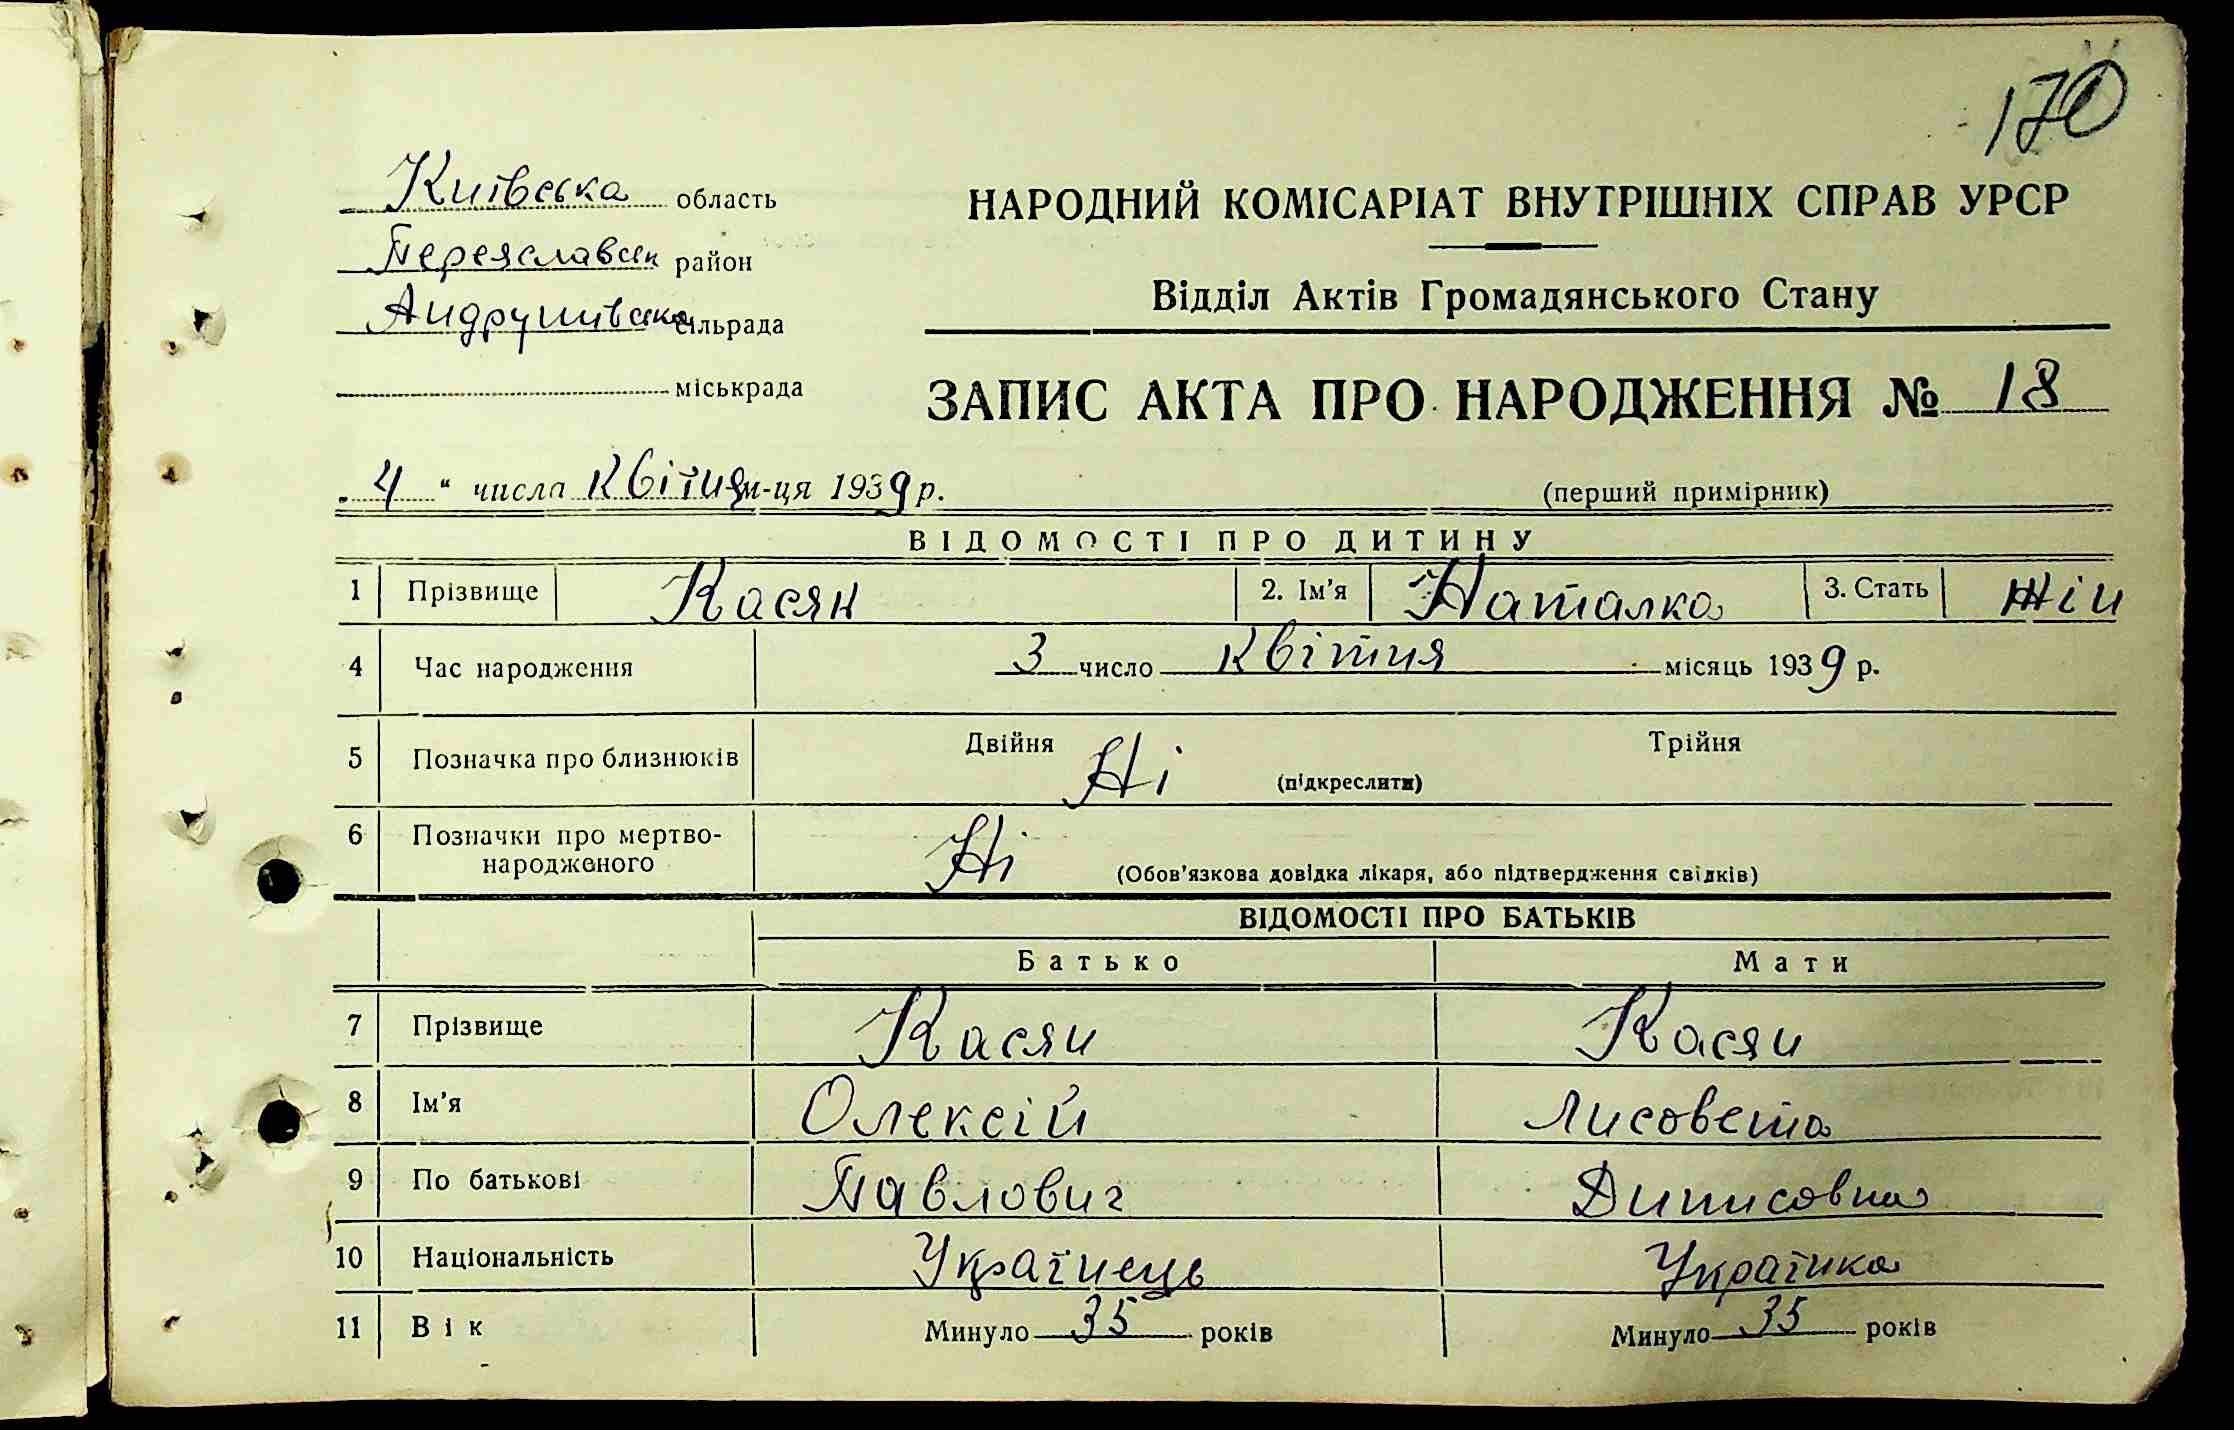 170
Київська область
Переяславськ район
Андрушівська сільрада
міськрада
НАРОДНИЙ КОМІСАРІАТ ВНУТРІШНІХ СПРАВ УРСР
Відділ Актів Громадянського Стану
ЗАПИС АКТА ПРО НАРОДЖЕННЯ № 18
„4“ числа квітня м-ця 1939 р.
(перший примірник)
ВІДОМОСТІ ПРО ДИТИНУ
1 Прізвище Касян 2. Ім'я Наталка 3. Стать жін
4 Час народження 3 число квітня місяць 1939 р.
5 Позначка про близнюків Двійня Ні (підкреслити) Трійня
6 Позначки про мертво-
народженого Ні (Обов'язкова довідка лікаря, або підтвердження свідків)
ВІДОМОСТІ ПРО БАТЬКІВ
Батько Мати
7 Прізвище Касян Касян
8 Ім'я Олексій Лисовета
9 По батькові Павлович Динисовна
10 Національність Українець Українка
11 Вік Минуло 35 років Минуло 35 років